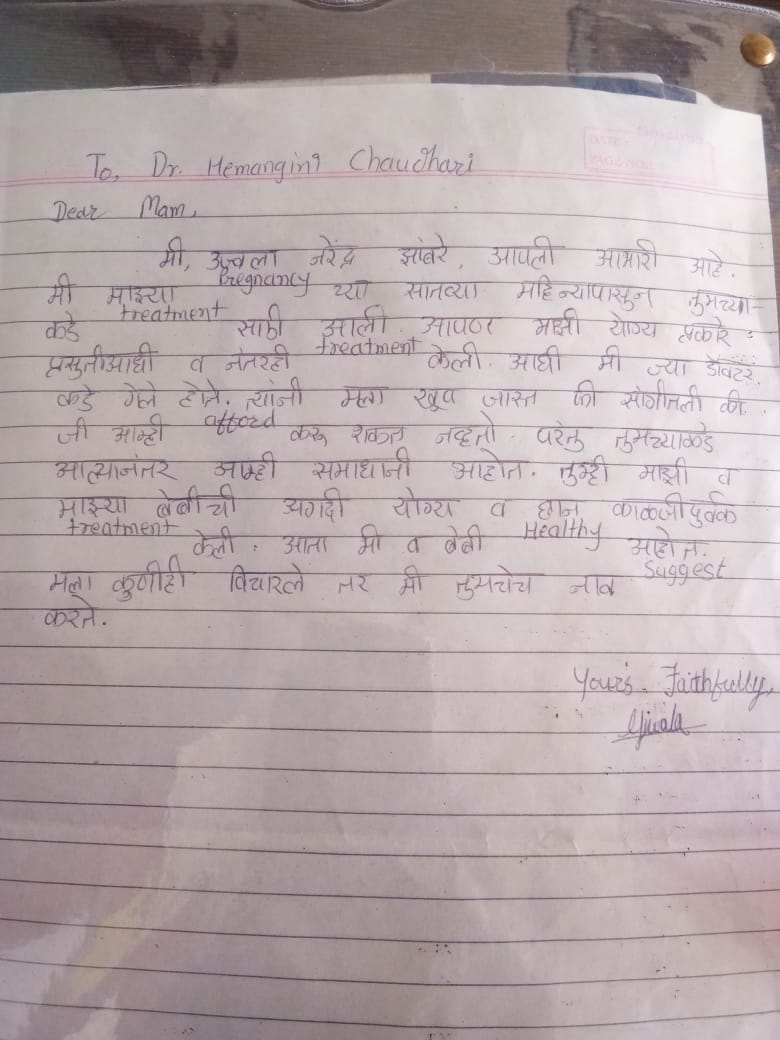 To, Dr. Hemangini Chaudhari
Dear Mam,
मी, उज्वला नरेंद्र झांबरे, आपली आभारी आहे.
मी माझ्या Pregnancy च्या सातव्या महिन्यापासुन तुमच्या-
कडे treatment साठी आली. आपण माझी योग्य प्रकारे
प्रसुतीआधी व नंतरही treatment केली. आधी मी ज्या डॉक्टर
कडे गेले होते. त्यांनी मला खूप जास्त फी सांगीतली की.
जी आम्ही afford करू शकत नव्हतो. परंतु तुमच्याकडे
आल्यानंतर आम्ही समाधानी आहोत. तुम्ही माझी व
माझ्या बेबीची अगदी योग्य व छान काळजीपुर्वक
treatment केली. आता मी व बेबी Healthy आहोत.
मला कुणीही विचारले तर मी तुमचेच नाव Suggest
करते.
Yours. Faithfully,
Ujwala